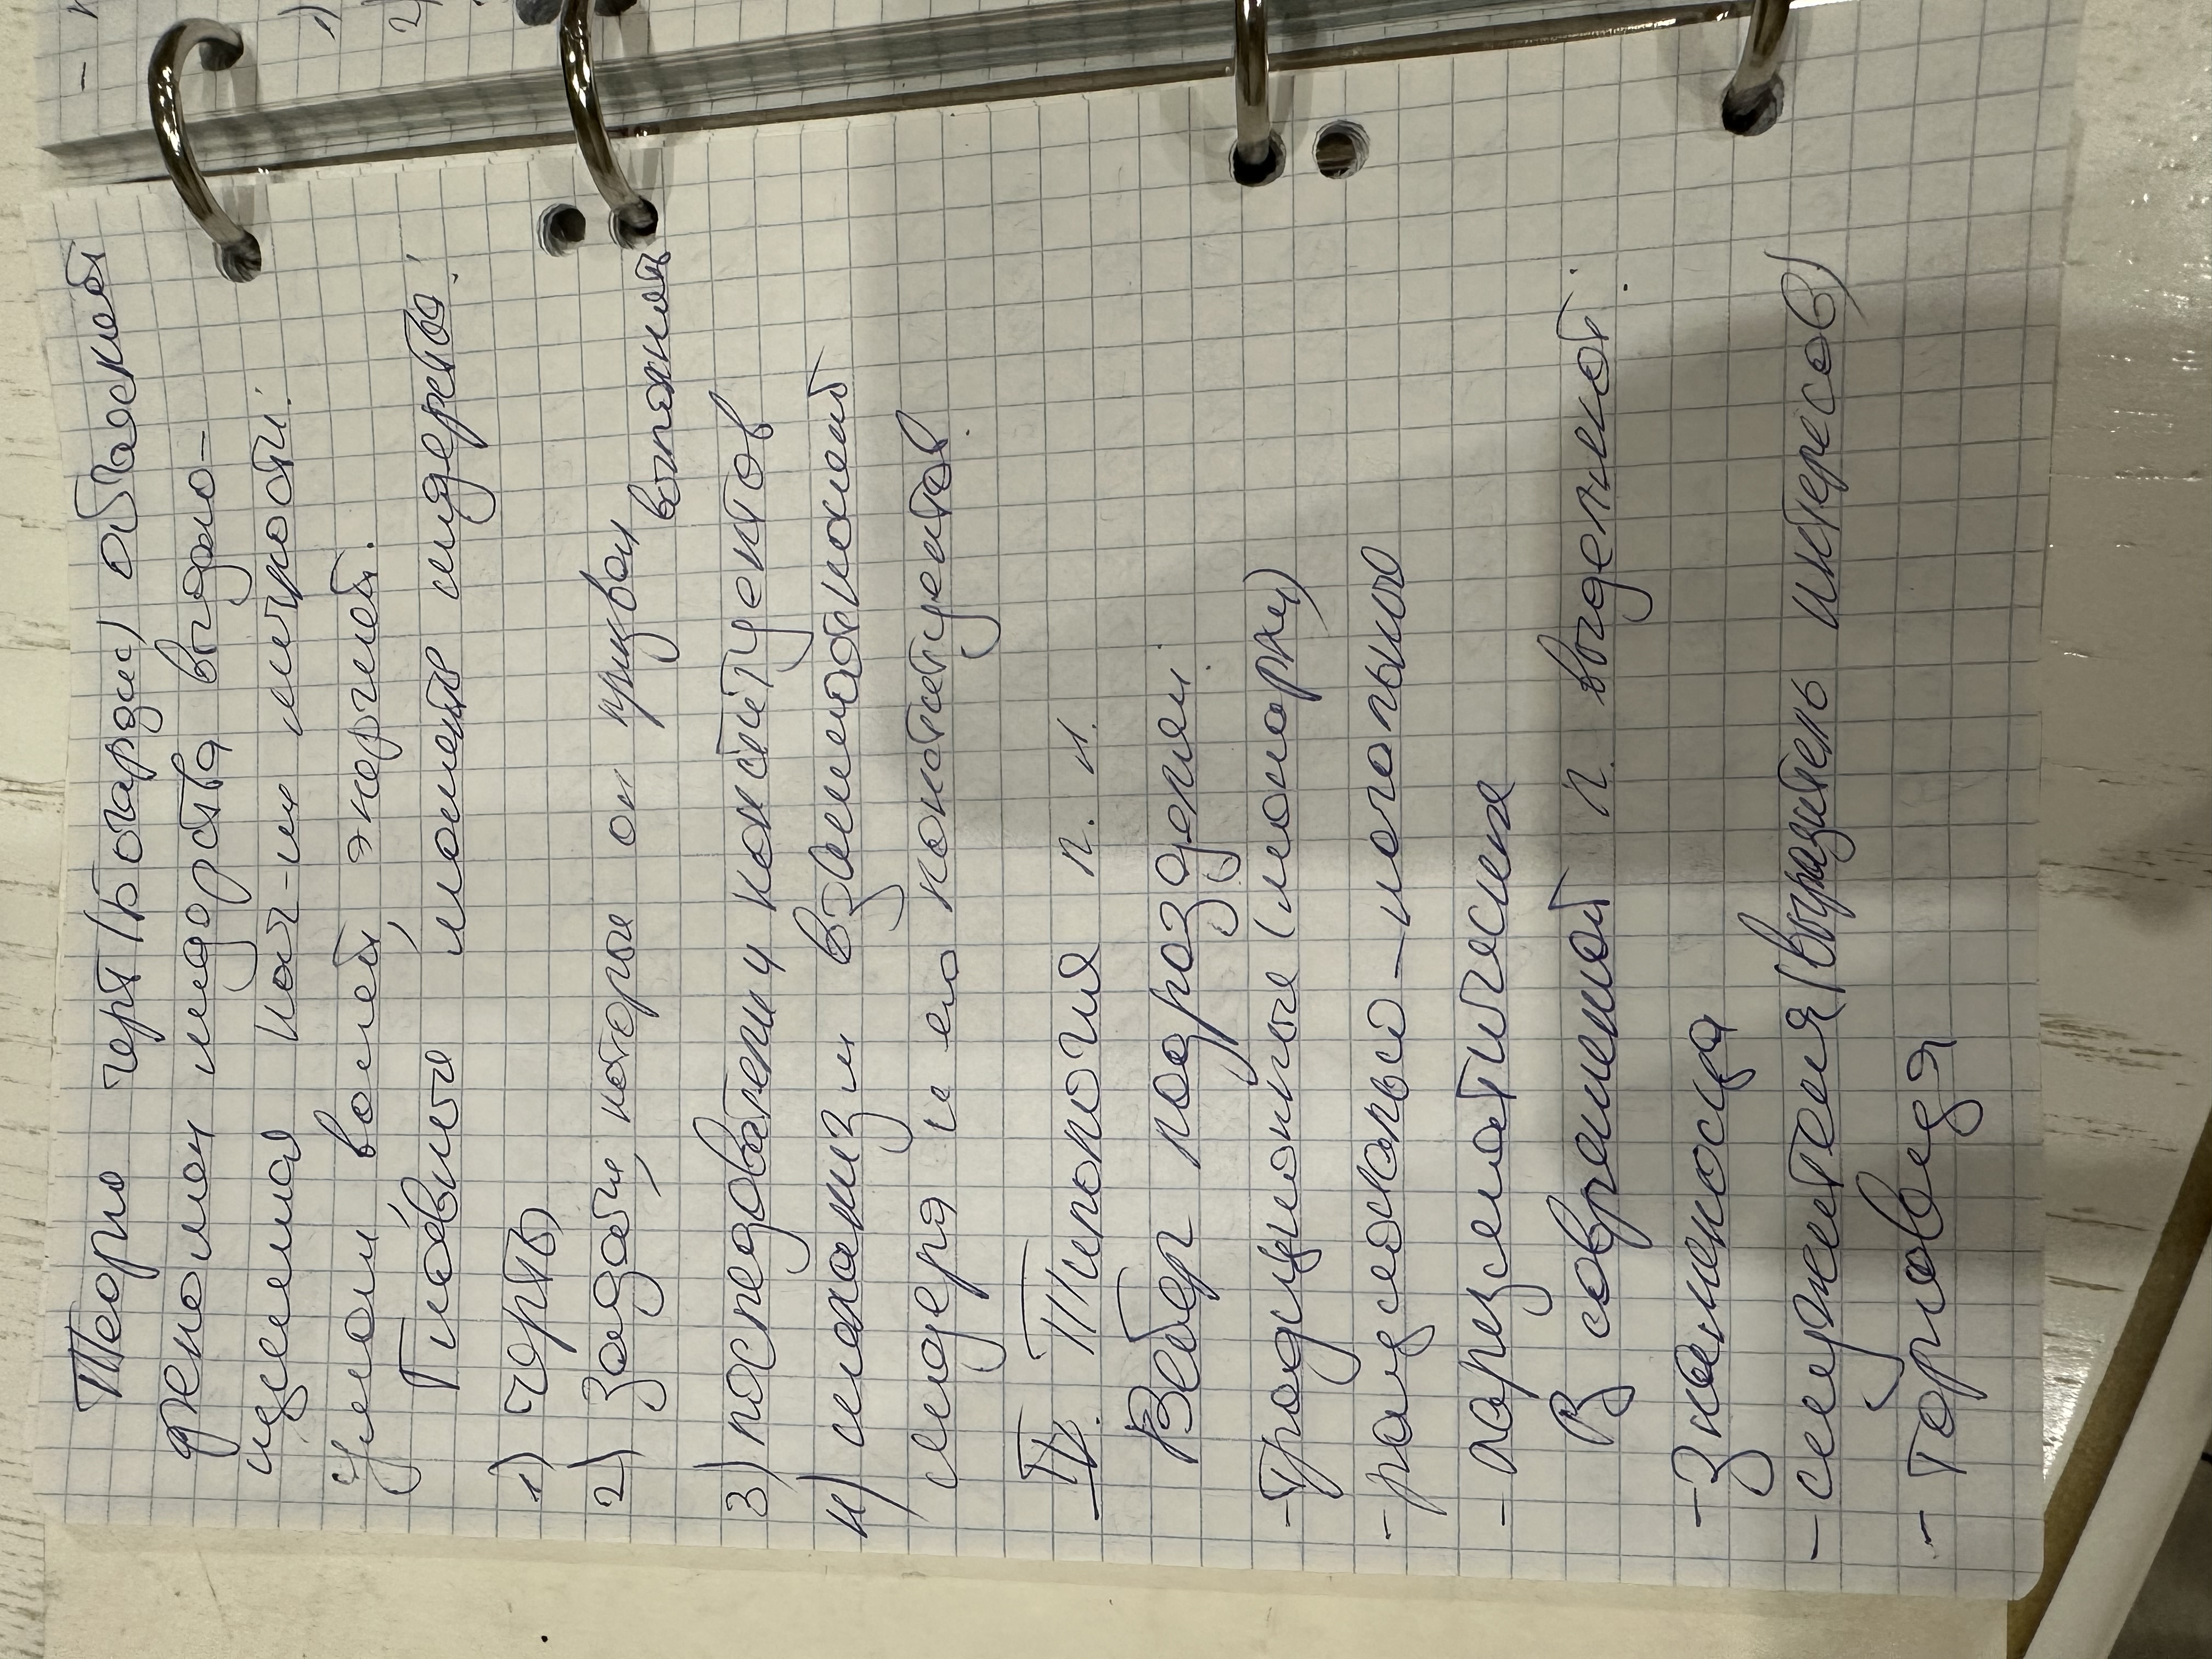 Теория черт (Богардис) объясняет
феномен лидерства выдаю-
щимися кач-ми личности:
умом, волей, энергией.
Главные моменты лидерства:
1) черты
2) задачи, которые он призван
выполнять
3) последователи и конституентов
4) механизм взаимоотношений
лидера и его конституентов.
IV. Типология п. л.
Вебер подразделял:
- традиционные (монархи)
- рационально-легальные
- харизматические
В современной п. выделяют:
- знаменосца
- служителя (выразитель интересов)
- торговца